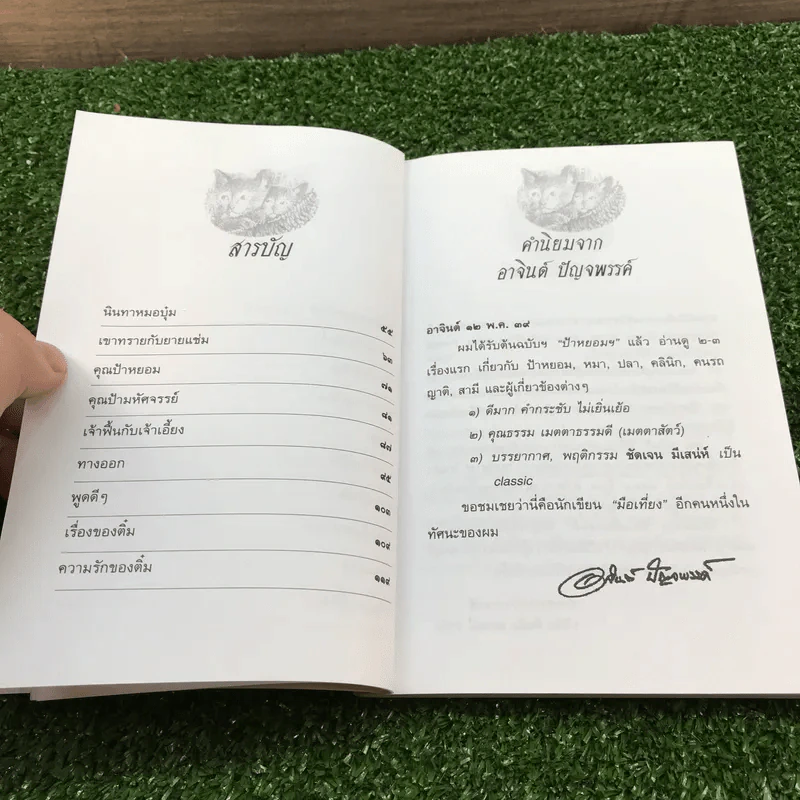 สารบัญ
นินทาหมอบุ๋ม ๕๕
เขาทรายกับยายแช่ม ๖๓
คุณป้าหยอม ๗๑
คุณป้ามหัศจรรย์ ๘๑
เจ้าฟื้นกับเจ้าเอี้ยง ๘๗
ทางออก ๙๕
พูดดีๆ ๑๐๓
เรื่องของติ๋ม ๑๐๙
ความรักของติ๋ม ๑๑๔
คำนิยมจาก
อาจินต์ ปัญจพรรค์
อาจินต์ ๑๒ พ.ค. ๓๙
ผมได้รับต้นฉบับฯ “ป้าหยอมฯ” แล้ว อ่านดู ๒-๓
เรื่องแรก เกี่ยวกับ ป้าหยอม, หมา, ปลา, คลินิก, คนรถ
ญาติ, สามี และผู้เกี่ยวข้องต่างๆ
๑) ดีมาก คำกระชับ ไม่เยิ่นเย้อ
๒) คุณธรรม เมตตาธรรมดี (เมตตาสัตว์)
๓) บรรยากาศ, พฤติกรรม ชัดเจน มีเสน่ห์ เป็น
classic
ขอชมเชยว่านี่คือนักเขียน “มือเที่ยง” อีกคนหนึ่งใน
ทัศนะของผม
อาจินต์ ปัญจพรรค์